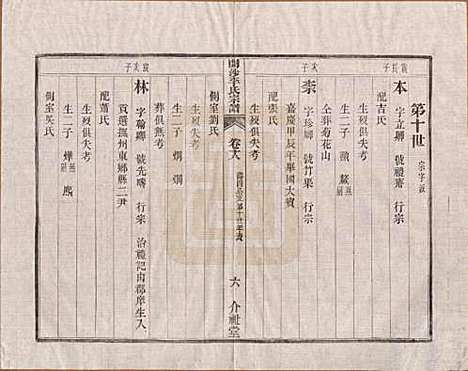 第十世 宗字派
本 字立卿 號禮齋 行宗
配吉氏
生二子 燉 嚴
生歿俱失考
仝葬菊花山
次子
李 字珍卿 號竹泉 行宗
嘉慶甲辰年舉國大賓
配張氏
生歿俱失考
側室劉氏
開沙李氏宗譜
卷六
六 介祉堂
生歿俱失考
生二子 炯 爛
葬俱無考
林 字翰卿 號先疇 行宗 治禮記由郡庠生入
貢選撫州東鄉縣二尹
配蕭氏
生二子 燁
側室吴氏